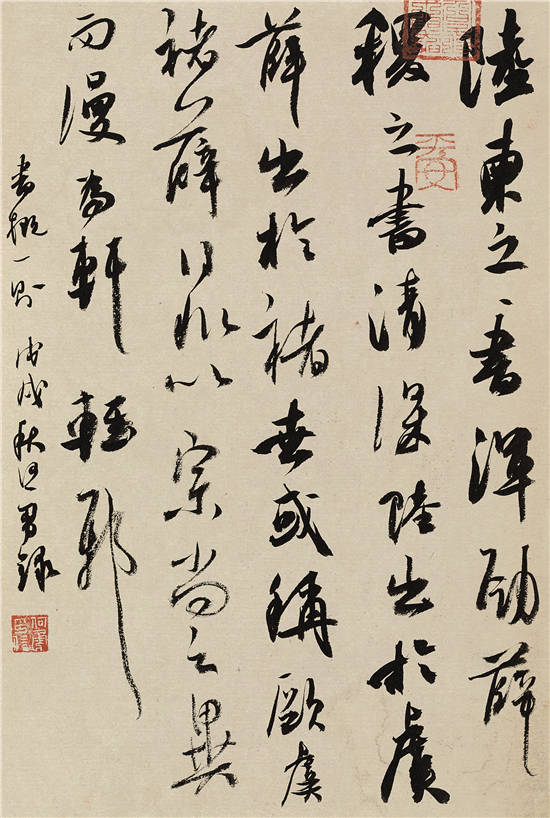 陸柬之之書渾勁薛
稷之書清深陸出於虞
薛出於褚世或稱歐虞
褚薛得非以宗尚之異
而漫為軒輊耶
書概一則 戊戌秋何錄